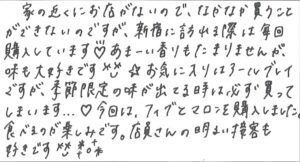 家の近くにお店がないので、なかなか買うこと
ができないのですが、新宿に訪れる際は毎回
購入しています♡あまーい香りもたまりませんが、
味も大好きです ☆お気に入りは3ールグレイ
ですが、季節限定の味が出てる時は必ず買って
しまいます…♡今回は、フィグとマロンを購入しました。
食べるのが楽しみです。店員さんの明るい接客も
好きです